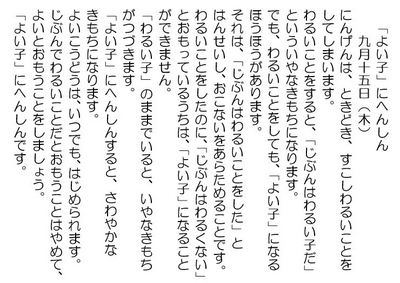 「よい子」にへんしん
九月十五日（木）
にんげんは、ときどき、すこしわるいことを
してしまいます。
わるいことをすると、「じぶんはわるい子だ」
といういやなきもちになります。
でも、わるいことをしても、「よい子」になる
ほうほうがあります。
それは、「じぶんはわるいことをした」と
はんせいし、おこないをあらためることです。
わるいことをしたのに、「じぶんはわるくない」
とおもっているうちは、「よい子」になること
ができません。
「わるい子」のままでいると、いやなきもち
がつづきます。
「よい子」にへんしんすると、さわやかな
きもちになります。
よいこうどうは、いつでも、はじめられます。
じぶんでわるいことだとおもうことはやめて、
よいとおもうことをしましょう。
「よい子」にへんしんです。